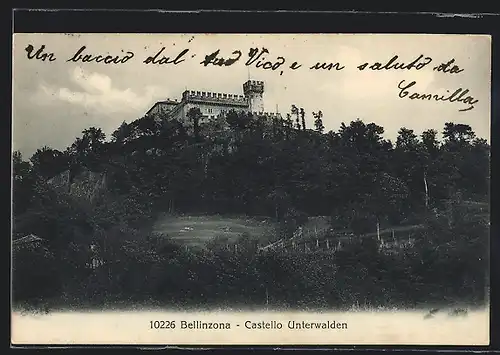 Un bacio dal tuo Vico, e un saluto da
Camilla,
10226 Bellinzona - Castello Unterwalden